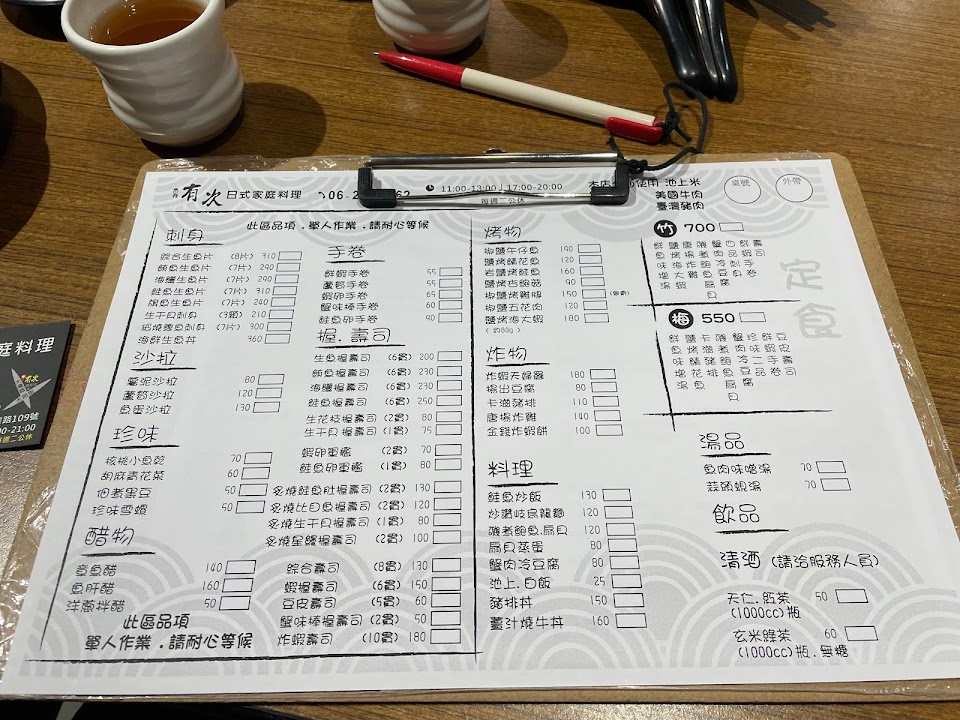 有次 日式家庭料理 06-2 62 11:00-13:00 17:00-20:00 每週二公休
使用 池上米
美國牛肉
臺灣豬肉
桌號 外帶
此區品項.單人作業.請耐心等候
刺身
綜合生魚片 (8片) 310
鮪魚生魚片 (7片) 290
海鱺生魚片 (7片) 290
鮭魚生魚片 (7片) 310
旗魚生魚片 (7片) 240
生干貝刺身 (3顆) 210
炤燒鰹魚刺身 (7片) 300
海鮮生魚丼 360
沙拉
薯泥沙拉 80
蘆筍沙拉 120
魚蛋沙拉 130
珍味
核桃小魚乾 70
胡麻青花菜 60
佃煮黑豆 50
珍味雪螺 50
醋物
章魚醋 140
魚肝醋 160
洋蔥拌醋 50
此區品項
單人作業.請耐心等候
手卷
鮮蝦手卷 55
蘆筍手卷 55
蝦卵手卷 65
蟹味棒手卷 60
鮭魚卵手卷 90
握.壽司
生魚握壽司 (6貫) 200
鮪魚握壽司 (6貫) 230
海鱺握壽司 (6貫) 230
鮭魚握壽司 (6貫) 250
生花枝握壽司 (2貫) 80
生干貝握壽司 (1貫) 75
蝦卵軍艦 (2貫) 70
鮭魚卵軍艦 (1貫) 80
炙燒鮭魚肚握壽司 (2貫) 130
炙燒比目魚握壽司 (2貫) 120
炙燒生干貝握壽司 (1貫) 80
炙燒星鰻握壽司 (2貫) 100
綜合壽司 (8貫) 130
蝦握壽司 (6貫) 150
豆皮壽司 (5貫) 60
蟹味棒握壽司 (2貫) 50
炸蝦壽司 (10貫) 180
烤物
椒鹽午仔魚 190
鹽烤鯖花魚 120
岩鹽烤鮭魚 160
鹽烤杏鮑菇 90
椒鹽雞腿 150
椒鹽五花肉 120
鹽烤海大蝦 180
(約80g)
炸物
炸蝦天婦羅 180
揚出豆腐 80
卡滋豬排 110
唐揚炸雞 140
金錢炸蝦餅 100
料理
鮭魚炒飯 130
炒讚岐烏龍麵 120
磯煮鮑魚.扇貝 120
扇貝蒸蛋 80
蟹肉冷豆腐 80
池上.白飯 25
豬排丼 150
薑汁燒牛丼 160
定食
竹 700
梅 550
湯品
魚肉味噌湯 70
蒜頭蜆湯 70
飲品
清酒 (請洽服務人員)
天仁.紅茶 50
(1000cc)瓶
玄米綠茶 60
(1000cc)瓶.無糖
庭料理
有次
路109號
00-21:00
每週二公休